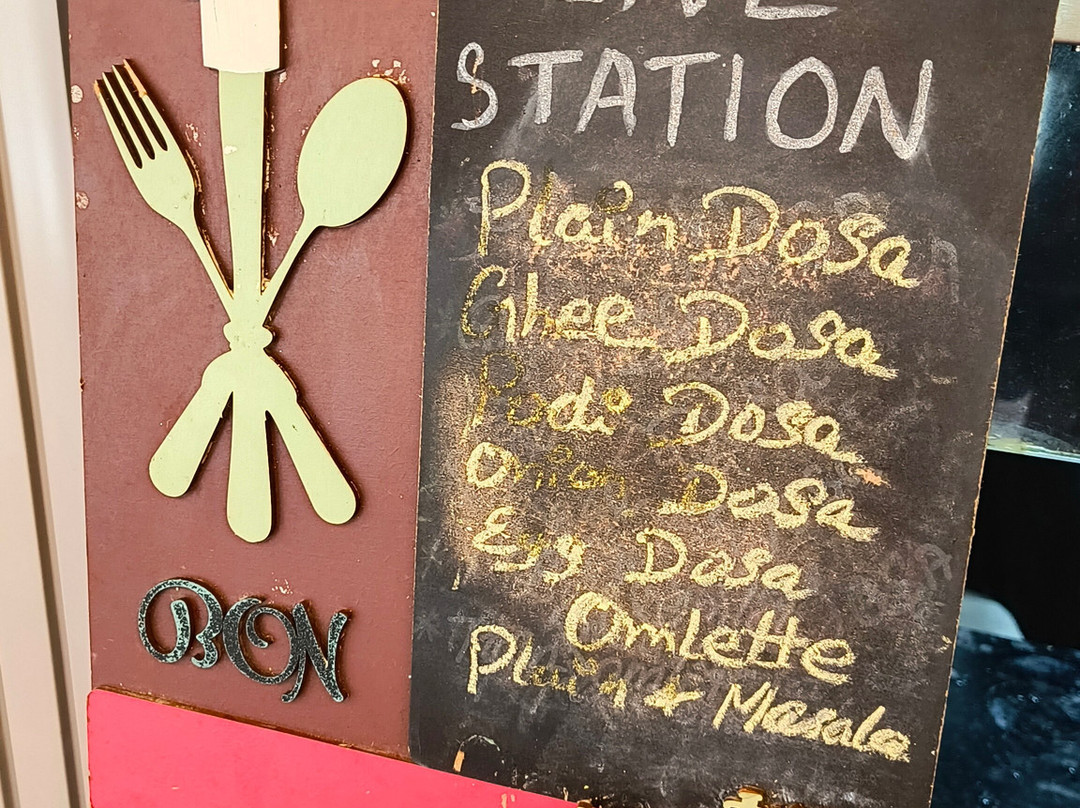 STATION
Plain Dosa
Ghee Dosa
Podi Dosa
Onion Dosa
Egg Dosa
Omlette
Plain + Masala
BON